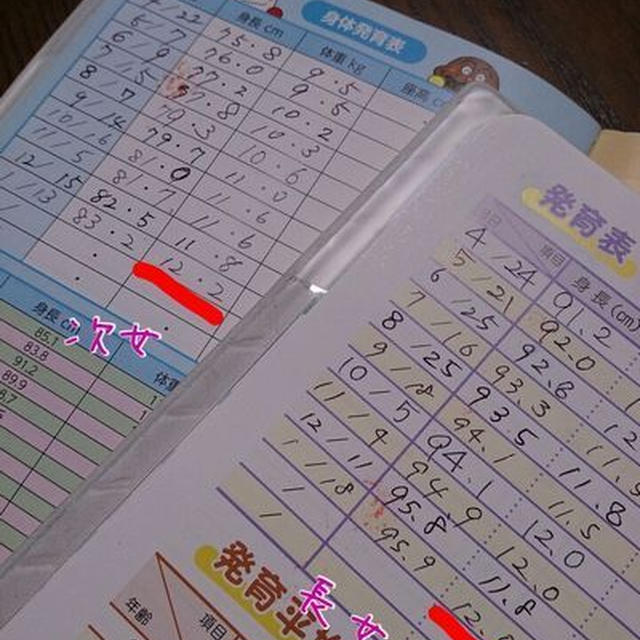 身体発育表
身長 cm
体重 kg
座高 c
4/22 75.8 9.5
6/7 76.0 9.5
6/9 77.2 10.2
7/5 77.8 10.3
8/7 79.3 10.6
9/14 79.7 11.0
10/16 81.0 11.6
11/5 81.7 11.6
12/15 82.5 11.8
1/13 83.2 12.2
次女
身長 c
体重
85.1
83.8
91.2
89.9
発育表
項目
身長(cm)
4/24 91.2
5/21 92.0
6/25 92.6
7/16 93.3
8/25 93.5 11.8
9/18 94.1 11.5
10/5 94.1 12.0
11/9 94.9 12.0
12/11 95.8 11.8
1/18 95.9 12.
発育平
長女
年齢
項目